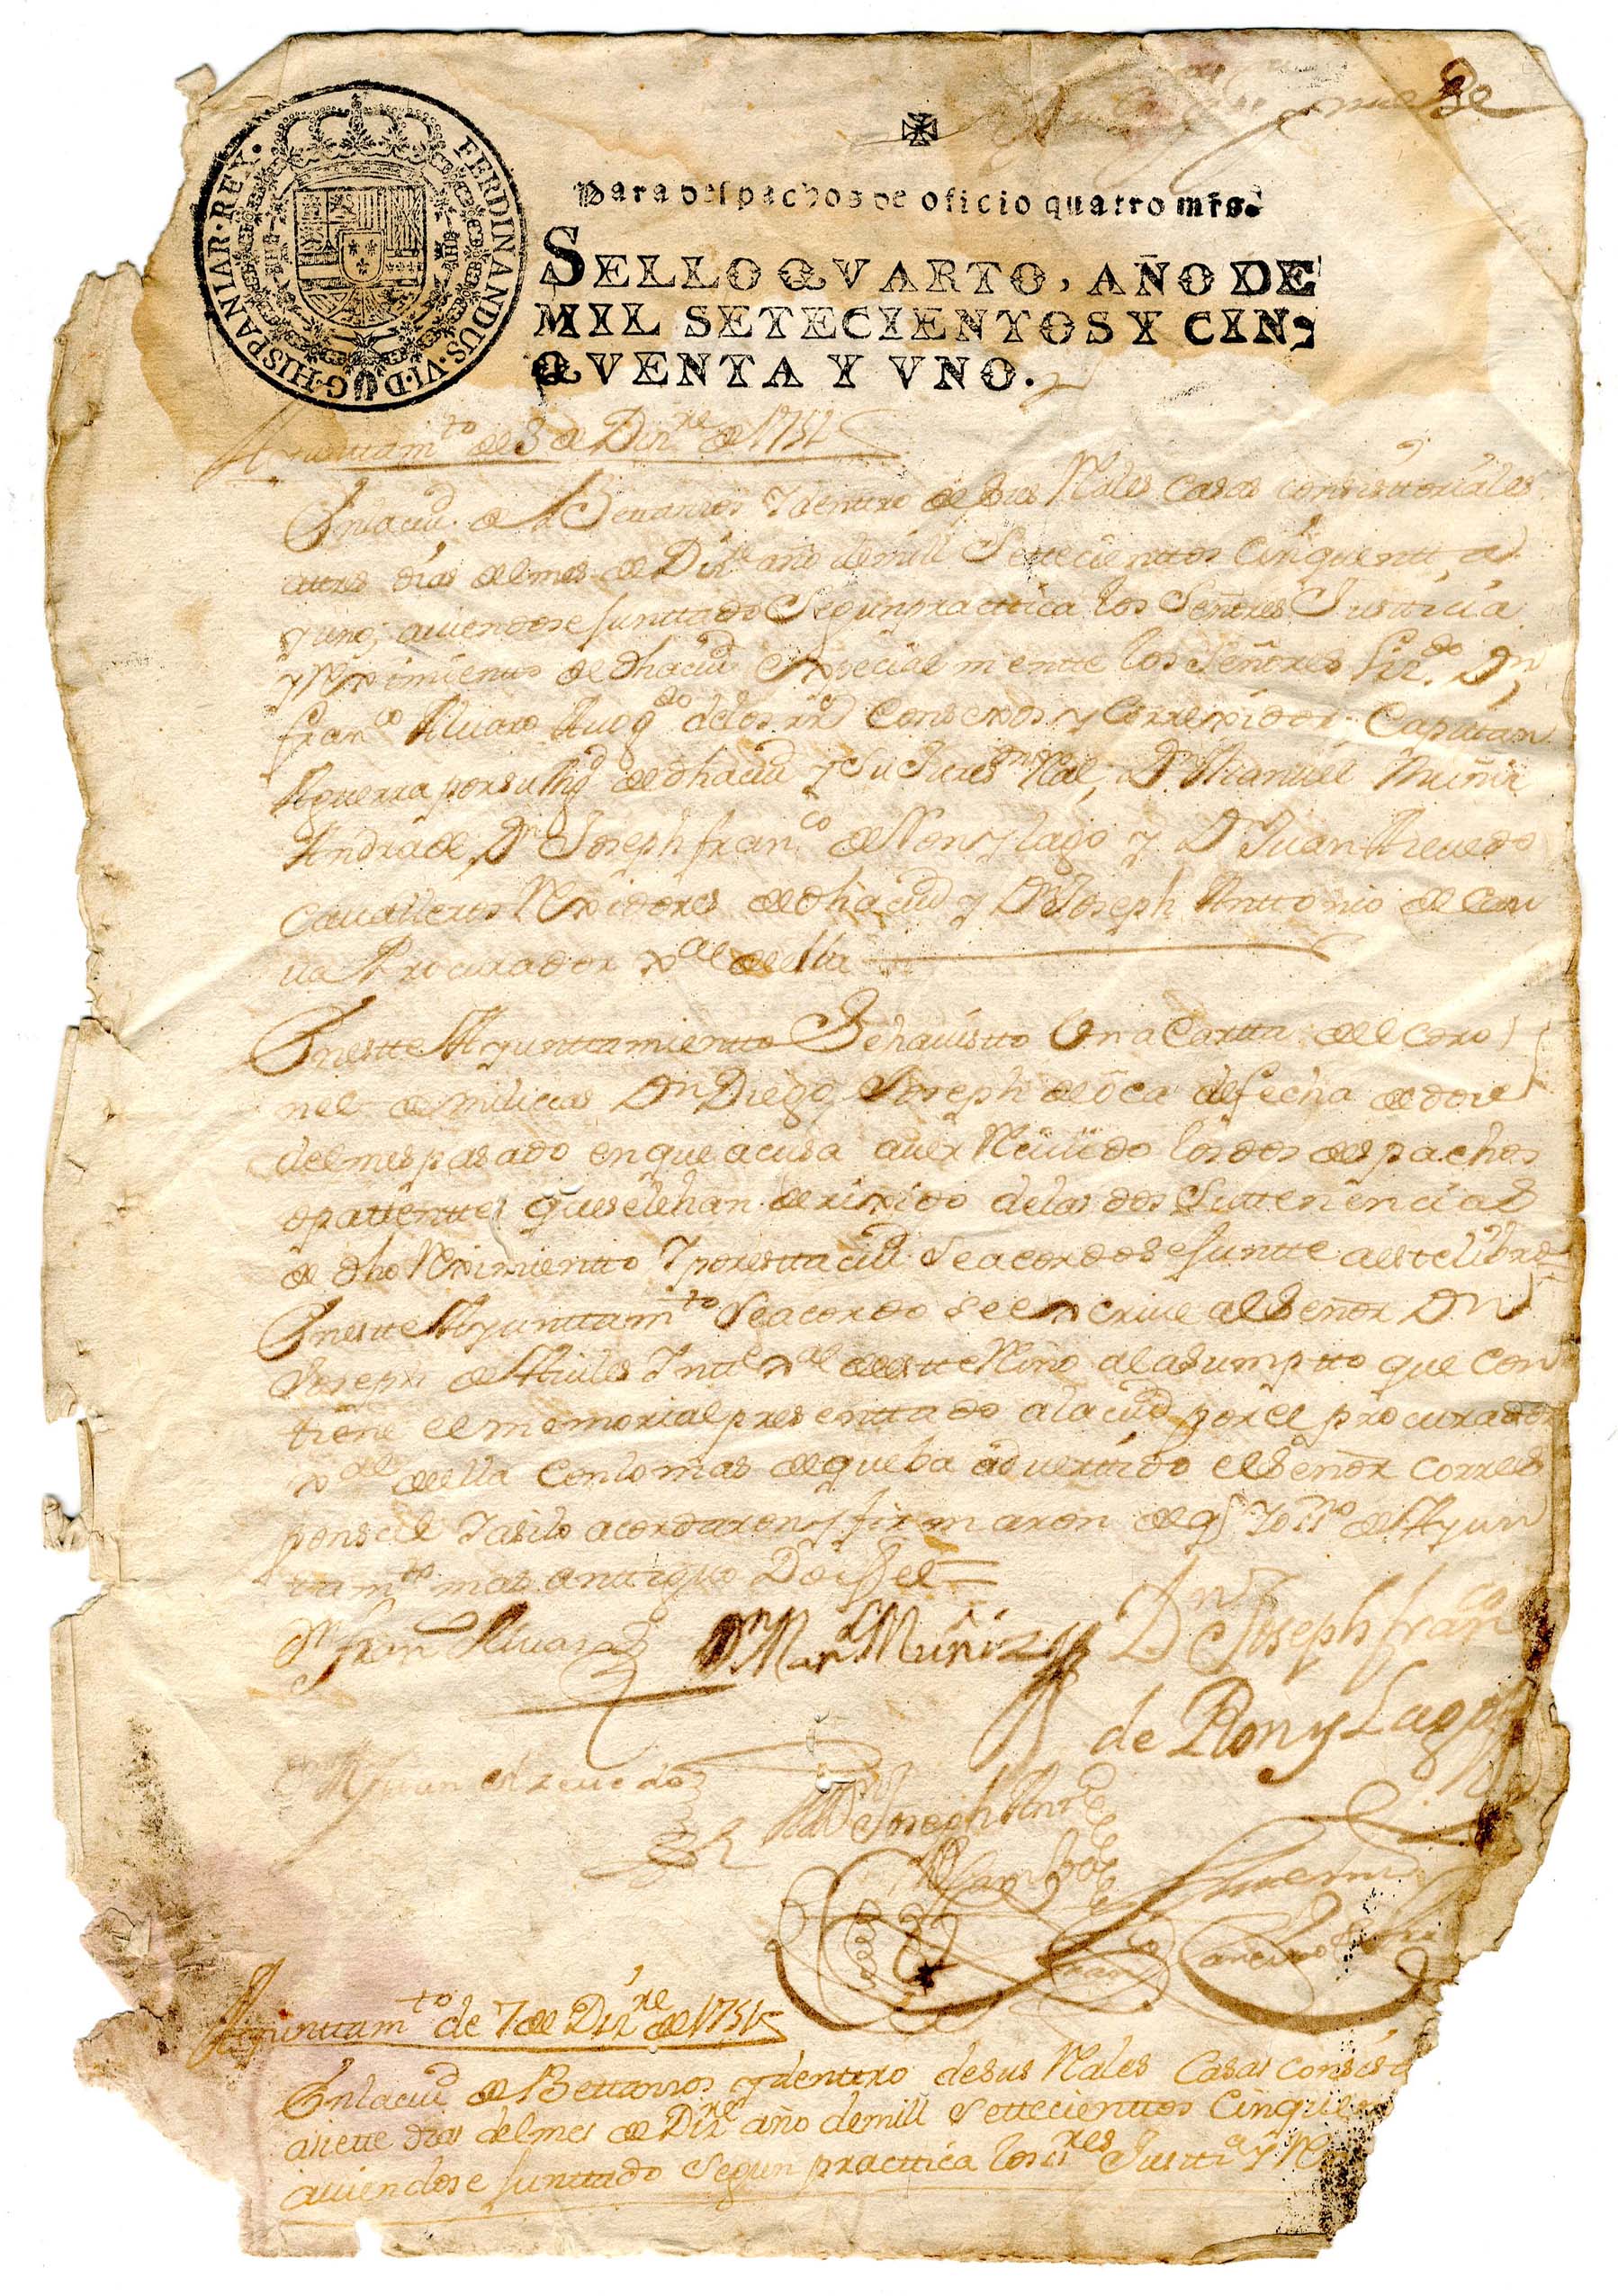 FERDINANDUS·VI·D·G·HISPANIAR·REX·
Para despachos de oficio quatro mrs.
SELLO QVARTO, AÑO DE
MIL SETECIENTOS Y CIN-
QVENTA Y VNO.
Ayuntamto de 3 de Dizre de 1751
Enlaciud de Betanzos y dentro de sus Rales Casas consistoriales
atres días del mes de Dizre año demill Settecienttos Cinquentta
y uno; auiendose junttado Segun practtica los Señores Justicia
y Reximiento de dhaciud expecialmentte los Señores Licdo Dn
Franco Aluaro Auogdo delos rrs Consexos y Correxidor, Capitan
Aguerra por su Mgd de dhaciud y Su Jurisdn Rl, Dn Manuel Muñiz
Andrade, Dn Joseph franco de Ron y lago y Dn Juan Azeuedo
Caualleros Rexidores de dhaciud y Dn Joseph Anttonio de
Procurador xal della
Enestte Ayunttamientto Sehauistto Una Cartta del Coro
nel de milicias Dn Diego Joseph de oca defecha de doze
delmes pasado enque acusa auer Reciuido los dos despachos
opattenttes queselehan derixido delas dos Suttenencias
de dho Reximientto Y poresttaciud Seacordo sejuntte aestelibro
Enestte Ayunttamto Seacordo seexcriue alSeñor Dn
Joseph de Auiles Intte xal deestte Reino alasumptto que con
tiene el memorial presenttado alaciud por el procurador
xal della Conlomas deque ba aduerttido elSeñor Corres
ponsal Yasilo acordaron y firmaron de q Yo esno de Ayun
tamto mas anttiguo Doi ffee=
Dn Franco Aluaro
Dn Manl Muñiz
Dn Joseph franco
de Ron y Lago
Dn Juan Azeuedo
Dn Joseph Antto
Ayunttamto de 7 de Dizre de 1751
Enlaciud de Bettanzos y dentro desus Rales Casas consist
asiette dias delmes de Dizre año demill Settecienttos Cinquen
auiendose junttado Segun practtica los sres Justta y Re